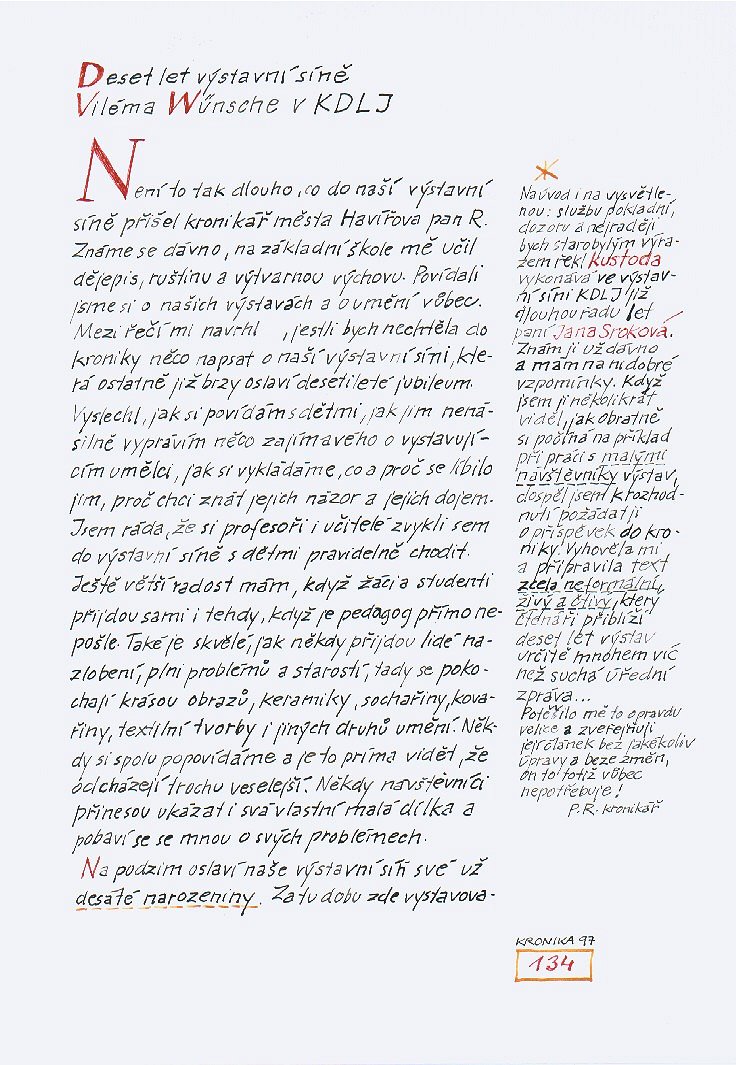 Deset let výstavní síně
Viléma Wünsche v KDLJ
Není to tak dlouho, co do naší výstavní
síně přišel kronikář města Havířova pan R.
Známe se dávno, na základní škole mě učil
dějepis, ruštinu a výtvarnou výchovu. Povídali
jsme si o našich výstavách a o umění vůbec.
Mezi řečí mi navrhl , jestli bych nechtěla do
kroniky něco napsat o naší výstavní síni, kte-
rá ostatně již brzy oslaví desetileté jubileum.
Vyslechl, jak si povídám s dětmi, jak jim nená-
silně vyprávím něco zajímavého o vystavují-
cím umělci, jak si vykládáme, co a proč se líbilo
jim, proč chci znát jejich názor a jejich dojem.
Jsem ráda, že si profesoři i učitelé zvykli sem
do výstavní síně s dětmi pravidelně chodit.
Ještě větší radost mám, když žáci a studenti
přijdou sami i tehdy, když je pedagog přímo ne-
pošle. Také je skvělé, jak někdy přijdou lidé na-
zlobení, plni problémů a starostí, tady se poko-
chají krásou obrazů, keramiky, sochařiny, kova-
řiny, textilní tvorby i jiných druhů umění. Něk-
dy si spolu popovídáme a je to príma vidět, že
odcházejí trochu veselejší. Někdy návštěvníci
přinesou ukázat i svá vlastní malá dílka a
pobaví se se mnou o svých problémech.
Na podzim oslaví naše výstavní síň své už
desáté narozeniny. Za tu dobu zde vystavova-
Na úvod i na vysvětle-
nou: službu pokladní,
dozoru a nejraději
bych starobylým výra-
zem řekl kustoda
vykonává ve výstav-
ní síni KDLJ již
dlouhou řadu let
paní Jana Sroková.
Znám ji už dávno
a mám na ni dobré
vzpomínky. Když
jsem ji několikrát
viděl, jak obratně
si počíná na příklad
při práci s malými
návštěvníky výstav,
dospěl jsem k rozhod-
nutí požádat ji
o příspěvek do kro-
niky. Vyhověla mi
a připravila text
zcela neformální,
živý a čtivý, který
čtenáři přiblíží
deset let výstav
určitě mnohem víc
než suchá úřední
zpráva...
Potěšilo mě to opravdu
velice a zveřejňuji
její článek bez jakékoliv
úpravy a beze změn,
on to totiž vůbec
nepotřebuje!
P.R. kronikář
KRONIKA 97
134